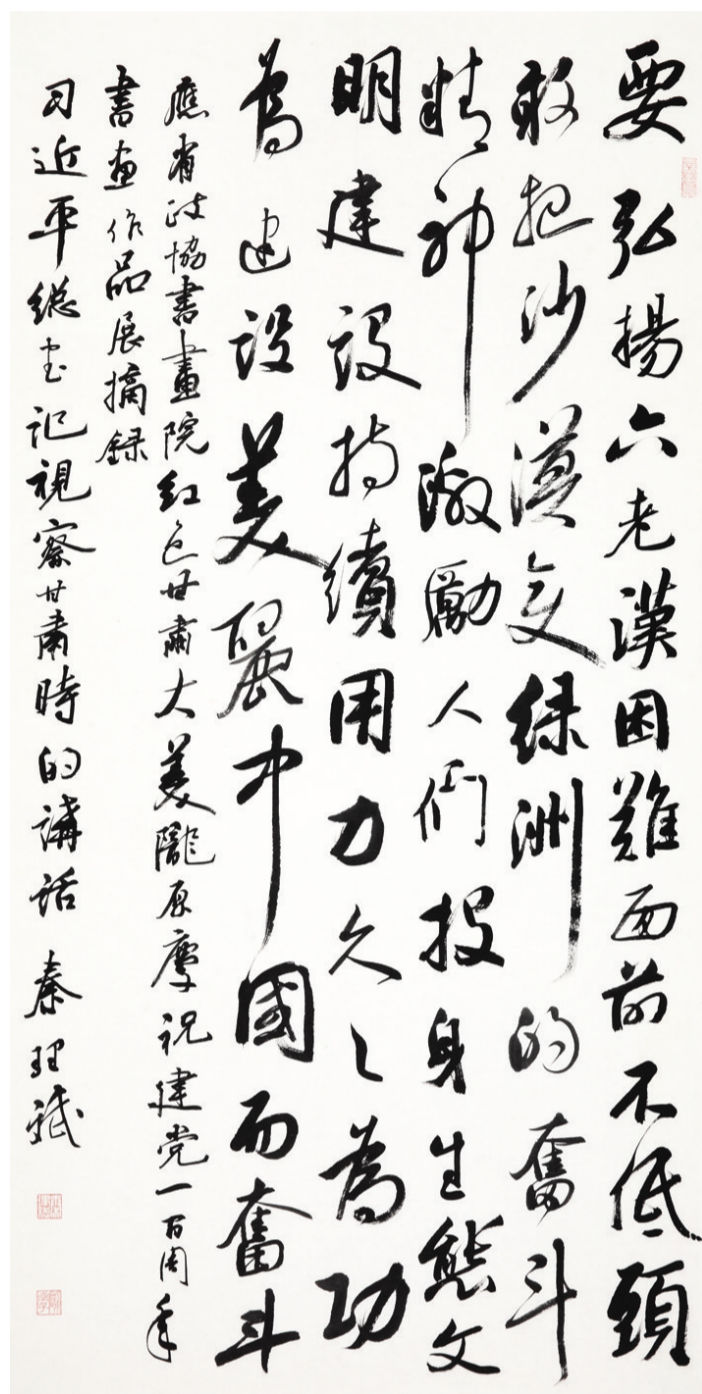 要弘揚六老漢困難面前不低頭
敢把沙漠变绿洲的奮斗
精神激勵人們投身生態文
明建設持續用力久久為功
為建設美麗中國而奮斗
應省政協書畫院红色甘肅大美隴原慶祝建党一百周年
書画作品展摘録
习近平総书记視察甘肅時的講話 秦理斌